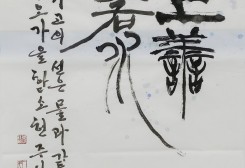 上善
若水
고의 선은 물과 같
가을 담소헌 주